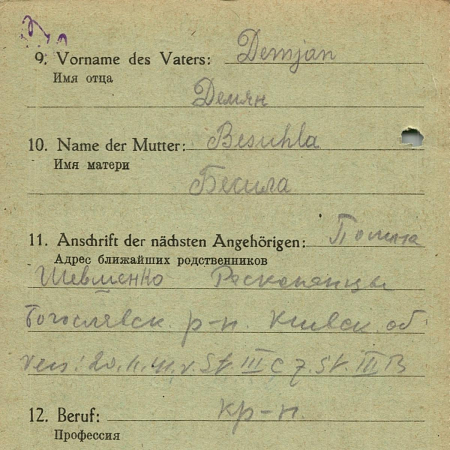 9. Vorname des Vaters: Demjan
Имя отца
Демян
10. Name der Mutter: Besuhla
Имя матери
Бесила
11. Anschrift der nächsten Angehörigen:
Адрес ближайших родственников
Шевченко
р-н. Киевск. об
Vers: 20.11.41. v. St. III C z. St. III B
12. Beruf: кр-н.
Профессия